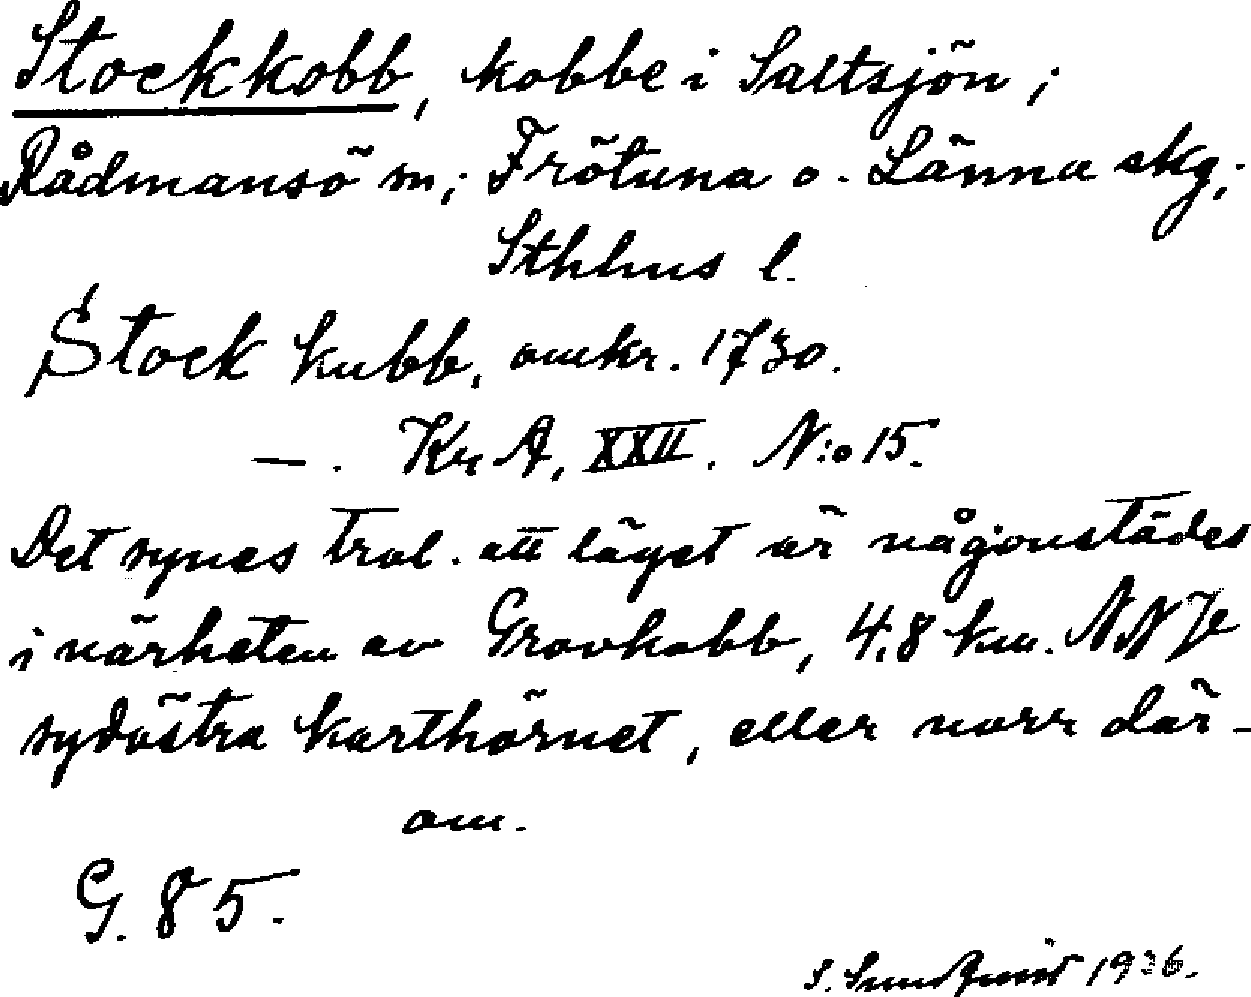 Stockkobb, kobbe i Saltsjön;
Rådmansö sn; Frötuna o. Länna skg;
Sthlms l.
Stock kubb, omkr. 1730.
—. Kr A, XXII. N:o 15.
Det synes trol. att läget är någonstädes
i närheten av Grovkobb, 4,8 km. NNV
sydöstra karthörnet, eller norr där-
om.
G. 85.
S. Sundqvist 1936.